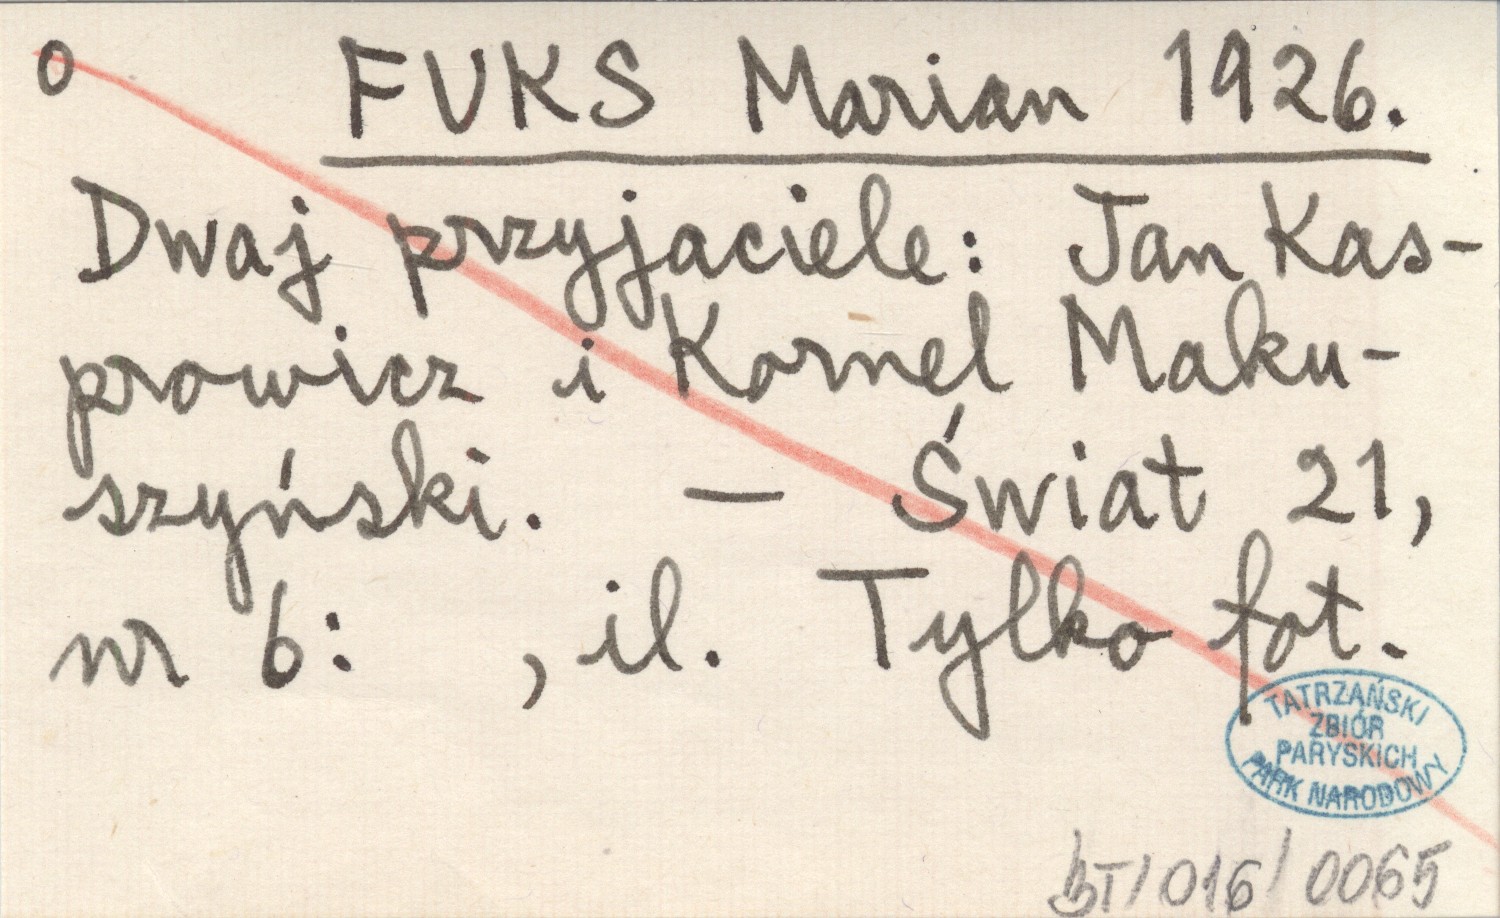 o FUKS Marian 1926.
Dwaj przyjaciele: Jan Kas-
prowicz i Kornel Maku-
szyński. — Świat 21,
nr 6: , il. Tylko fot.
TATRZAŃSKI
ZBIÓR
PARYSKICH
PARK NARODOWY
BT/016/0065